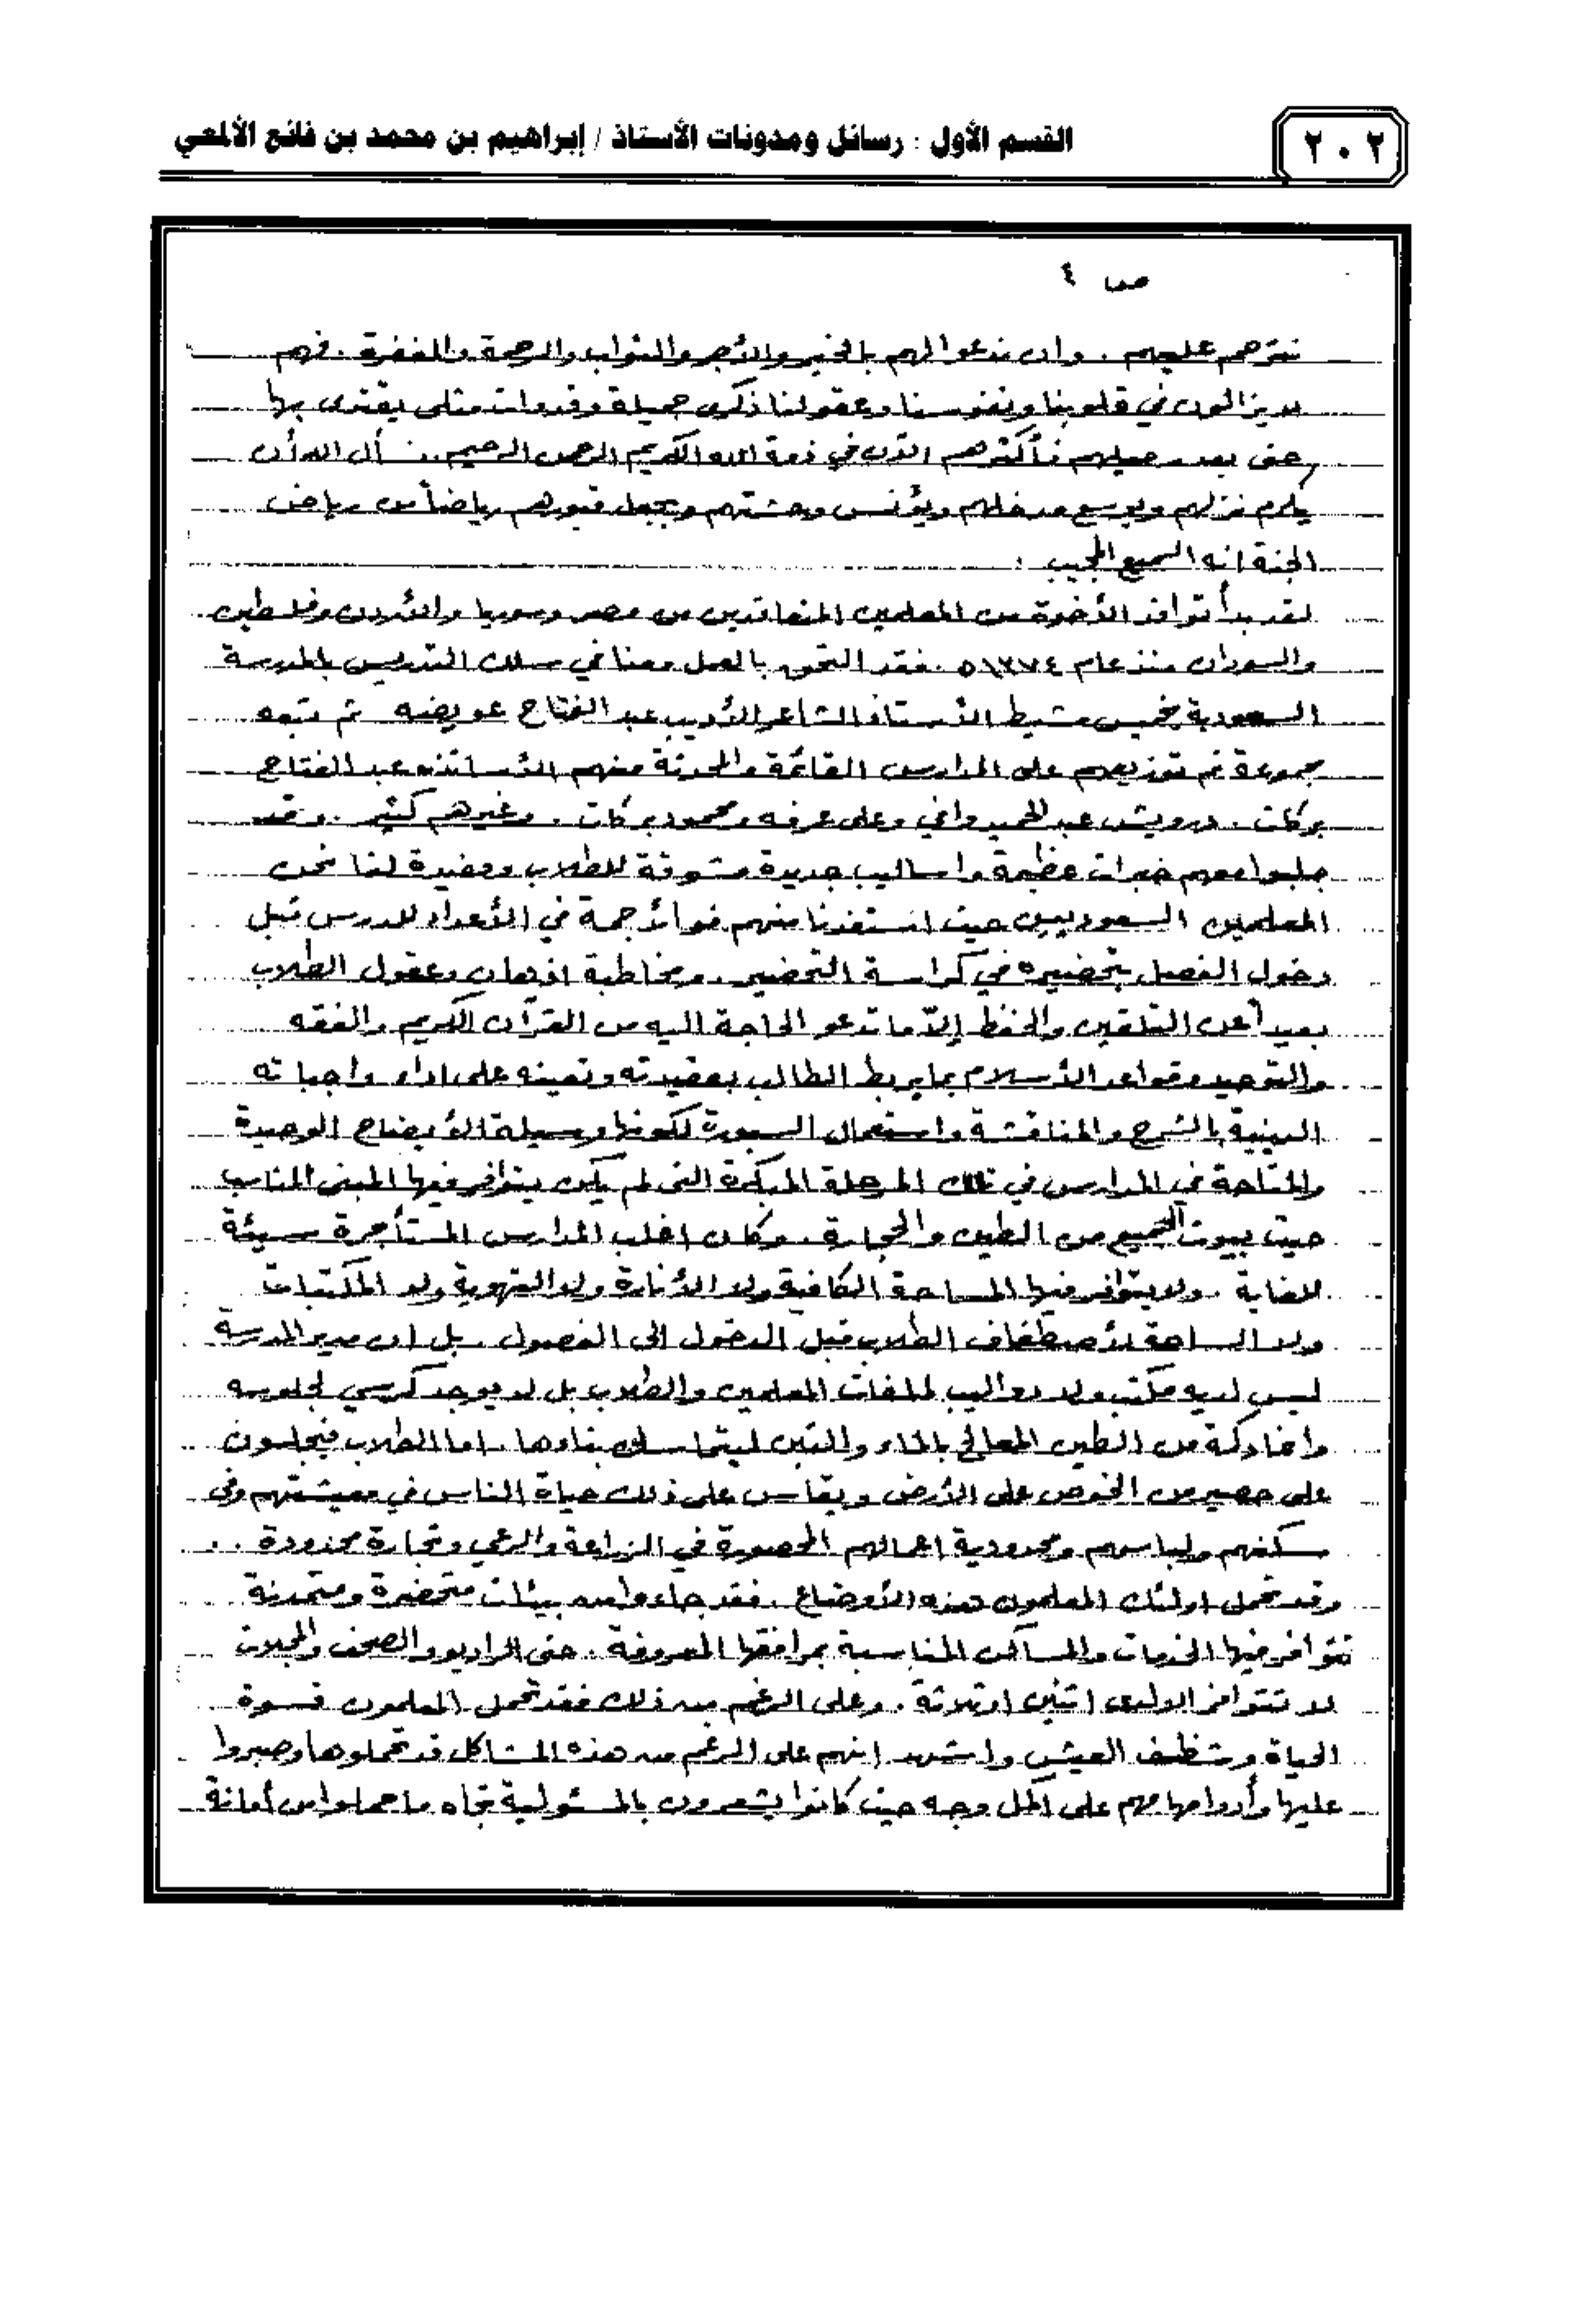 ٢٠٢
القسم الأول : رسائل ومدونات الأستاذ / إبراهيم بن محمد بن فائع الألمعي
ص ٤
نترحم عليهم . وان ندعوا لهم بالخير والأجر والثواب والرحمة والمغفرة . فهم
لايزالون في قلوبنا ونفوسنا وعقولنا ذكرى جميلة وقدوات مثلى يقتدى بها
حتى بعد رحيلهم فأكثرهم الآن في ذمة الله الكريم الرحمن الرحيم .. نسأل الله أن
يكرم نزلهم ويوسع مدخلهم ويؤنس وحشتهم ويجعل قبورهم رياضاً من رياض
الجنة انه السميع المجيب .
لقد بدأ توافد الأخوة من المعلمين المتعاقدين من مصر وسوريا والأردن وفلسطين
والسودان منذ عام ١٣٧٤هـ . فقد التحق بالعمل معنا في سلك التدريس بالمدرسة
السعودية بخميس مشيط الأستاذ الشاعر الأديب عبد الفتاح عويضه ثم تبعه
مجموعة تم توزيعهم على المدارس القائمة والمحدثة منهم الأساتذه عبد الفتاح
بركات . درويش عبد الحميد وافي وعلي عرفه ومحمود بركات . وغيرهم كثير . وقد
جلبوا معهم خبرات عظيمة واساليب جديدة مشوقة للطلاب ومفيدة لنا نحن
المعلمين السعوديين حيث استفدنا منهم فوائد جمة في الأعداد للدرس قبل
دخول الفصل بتحضيره في كراسة التحضير . ومخاطبة اذهان وعقول الطلاب
بعيداً عن التلقين والحفظ إلاّ ما تدعو الحاجة اليه من القرآن الكريم والفقه
والتوحيد وقواعد الأسلام بما يربط الطالب بعقيدته وتعينه على اداء واجباته
الدينية بالشرح والمناقشة واستعمال السبورة لكونها وسيلة الأيضاح الوحيدة
والمتاحة في المدارس في تلك المرحلة المبكرة التي لم يكن يتوافر فيها المبنى المناسب
حيث بيوت الجميع من الطين والحجارة . وكان اغلب المدارس المستأجرة سيئة
للغاية . ولا يتوافر فيها المساحة الكافية ولا الأنارة ولا التهوية ولا المكتبات
ولا الساحة لأصطفاف الطلاب قبل الدخول الى الفصول . بل ان مدير المدرسة
ليس لديه مكتب ولا دواليب لملفات المعلمين والطلاب بل لا يوجد كرسي لجلوسه
وانما دكة من الطين المعالج بالماء والتبن ليتماسك بناؤها . اما الطلاب فيجلسون
على حصير من الخوص على الأرض ويقاس على ذلك حياة الناس في معيشتهم وفي
سكنهم ولباسهم ومحدودية اعمالهم المحصورة في الزراعة والرعي وتجارة محدودة ..
وقد تحمل اولئك المعلمون هذه الأوضاع . فقد جاءوا من بيئات متحضرة ومتمدنة
تتوافر فيها الخدمات والمساكن المناسبة بمرافقها المعروفة . حتى الراديو والصحف والمجلات
لا تتوافر الا لدى اثنين او ثلاثة . وعلى الرغم من ذلك فقد تحمل المعلمون قسوة
الحياة وشظف العيش واشهد انهم على الرغم من هذه المشاكل قد تحملوها وصبروا
عليها وأدوا مهامهم على اكمل وجه حيث كانوا يشعرون بالمسئولية تجاه ما حملوا من أمانة